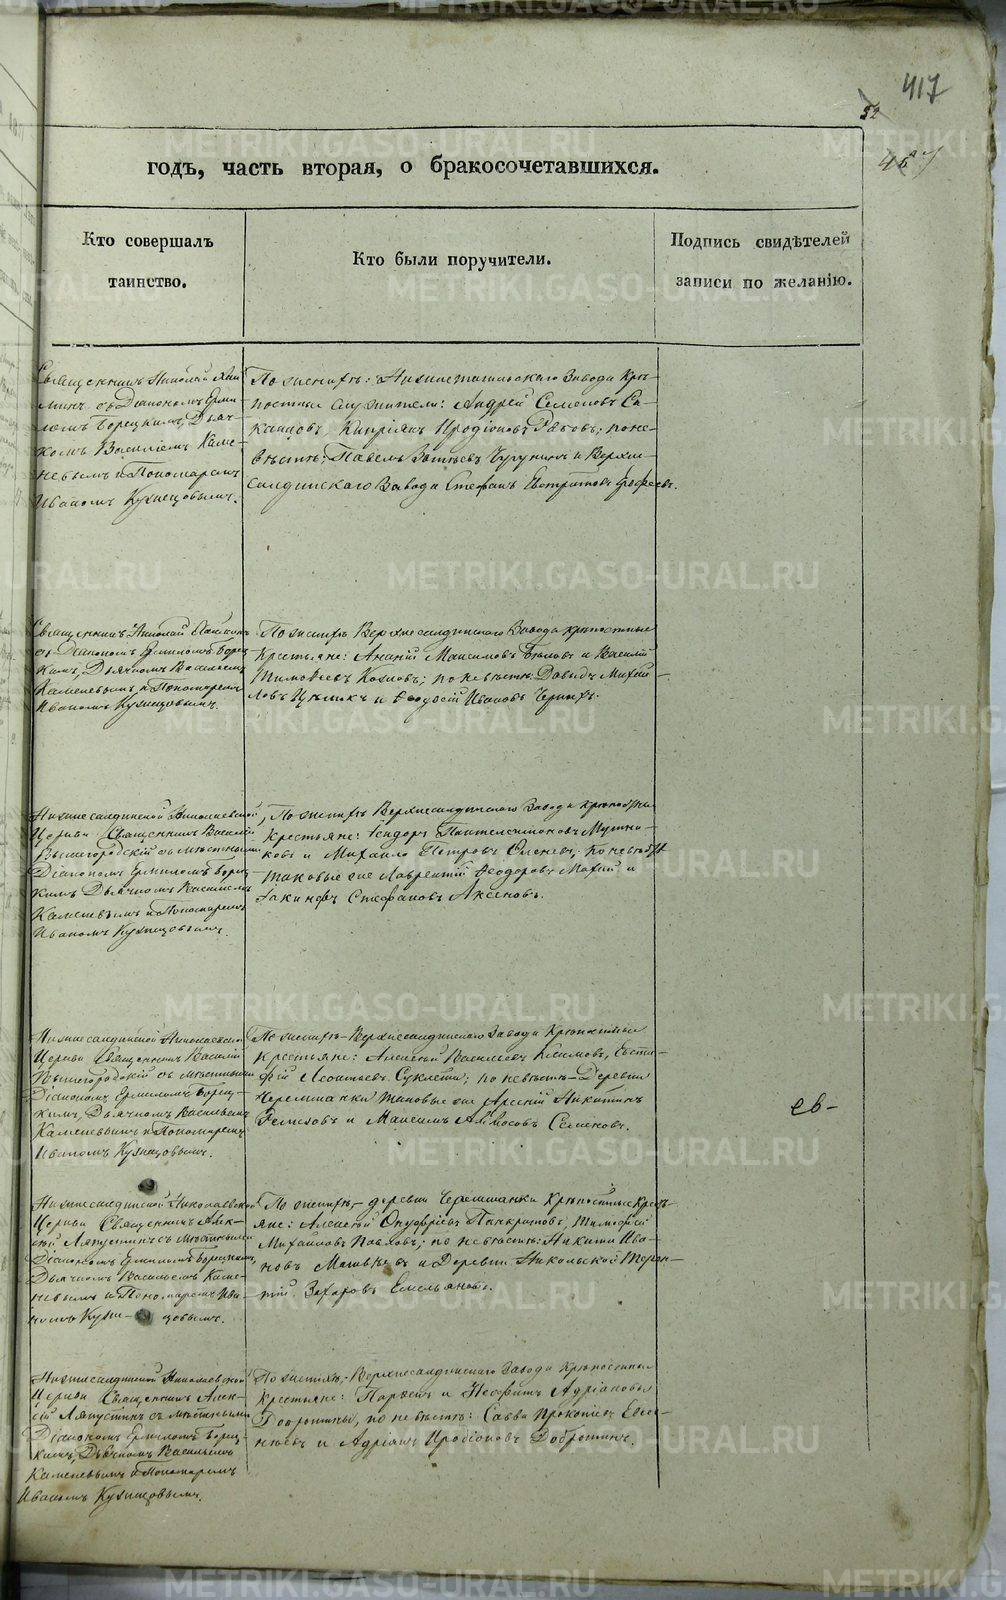 417
52
годъ, часть вторая, о бракосочетавшихся.
Кто совершалъ
таинство.
Кто были поручители.
Подпись свидѣтелей
записи по желанію.
Священникъ Николай
съ Діакономъ Ерми-
ломъ Борецкимъ, Дьяч-
комъ Василіемъ Каме-
невымъ и Пономаремъ
Иваномъ Кузнецовымъ.
По женихѣ: Нижнетагильскаго Завода Крѣ-
постные служители: Андрей Семеновъ
Кипріянъ Иродіоновъ Рябовъ; по не-
вѣстѣ: Павелъ Чугунинъ и Верхне-
салдинскаго Завода Стефанъ Евстратовъ
Священникъ Николай
съ Діакономъ Ермиломъ Борец-
кимъ, Дьячкомъ Василіемъ
Каменевымъ и Пономаремъ
Иваномъ Кузнецовымъ.
По женихѣ Верхнесалдинскаго Завода крѣпостные
Крестьяне: Ананій Максимовъ и Василій
Тимоѳеевъ Козловъ; по невѣстѣ: Давидъ Михай-
ловъ и Ѳеодосій Ивановъ
Нижнесалдинской Николаевской
Церкви Священникъ Василій
Вышегородскій съ мѣстнымъ
Діакономъ Ермиломъ Борец-
кимъ Дьячкомъ Василіемъ
Каменевымъ и Пономаремъ
Иваномъ Кузнецовымъ.
По женихѣ Верхнесалдинскаго Завода крѣпостные
Крестьяне: Исидоръ Пантелеимоновъ
и Михайло Петровъ по невѣстѣ
таковые же Лаврентій Ѳеодоровъ и
Іакинфъ Стефановъ Аксеновъ.
Нижнесалдинской Николаевской
Церкви Священникъ Василій
Вышегородскій съ мѣстнымъ
Діакономъ Ермиломъ Борец-
кимъ, Дьячкомъ Василіемъ
Каменевымъ и Пономаремъ
Иваномъ Кузнецовымъ.
По женихѣ – Верхнесалдинскаго Завода Крѣпостные
Крестьяне: Алексѣй Васильевъ Климовъ, Евсти-
фій Леонтьевъ по невѣстѣ – Деревни
Черемшанки таковые же Арсеній Никитинъ
и Максимъ Аммосовъ Семеновъ.
Нижнесалдинской Николаевской
Церкви Священникъ Алек-
сѣй Ляпустинъ съ мѣстнымъ
Діакономъ Ермиломъ Борецкимъ,
Дьячкомъ Василіемъ Каме-
невымъ и Пономаремъ Ива-
номъ Кузне- цовымъ.
По женихѣ, – деревни Черемшанки Крѣпостные Кресть-
яне: Алексѣй Онуфріевъ Панкратовъ, Тимофей
Михайловъ Павловъ; по невѣстѣ: Никита Ива-
новъ Матвѣевъ и Деревни Никольской Терен-
тій Захаровъ Емельяновъ.
Нижнесалдинской Николаевской
Церкви Священникъ Алек-
сѣй Ляпустинъ съ мѣстнымъ
Діакономъ Ермиломъ Борец-
кимъ, Дьячкомъ Василіемъ
Каменевымъ и Пономаремъ
Иваномъ Кузнецовымъ.
По женихѣ, – Верхнесалдинскаго Завода Крѣпостные
Крестьяне: и Неофитъ Адріановы
по невѣстѣ: Савва Прокопьевъ
и Адріанъ Иродіоновъ Добротинъ.
METRIKI.GASO-URAL.RU